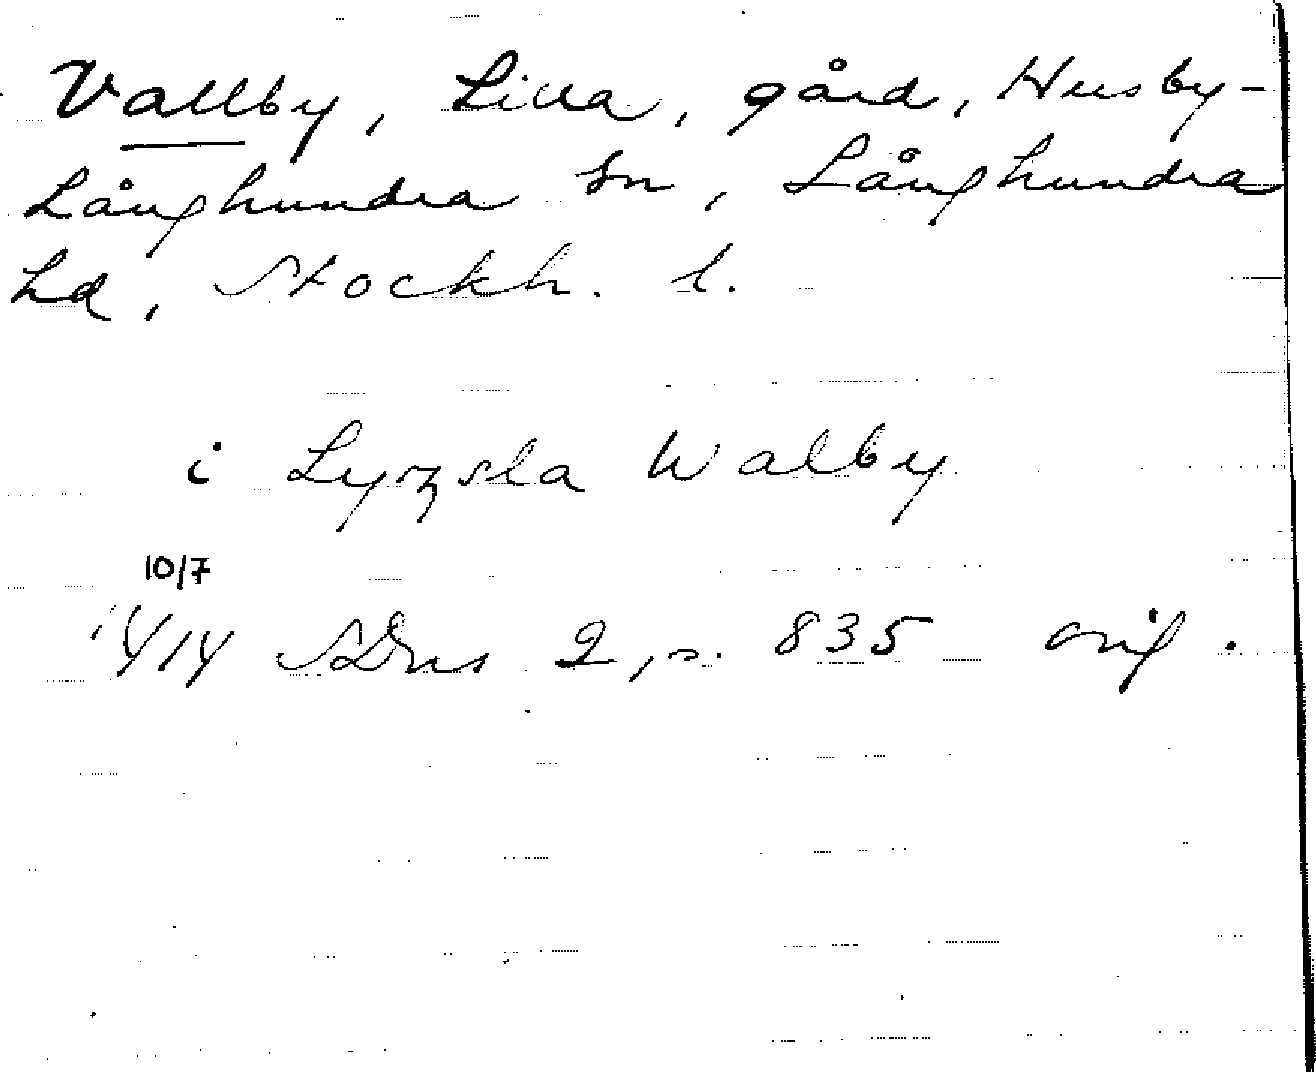 Vallby, Lilla, gård, Husby-
Långhundra sn, Långhundra
hd, Stockh. l.
i Lyzsla Walby
10/7
1414 SDns 2, s. 835 orig.